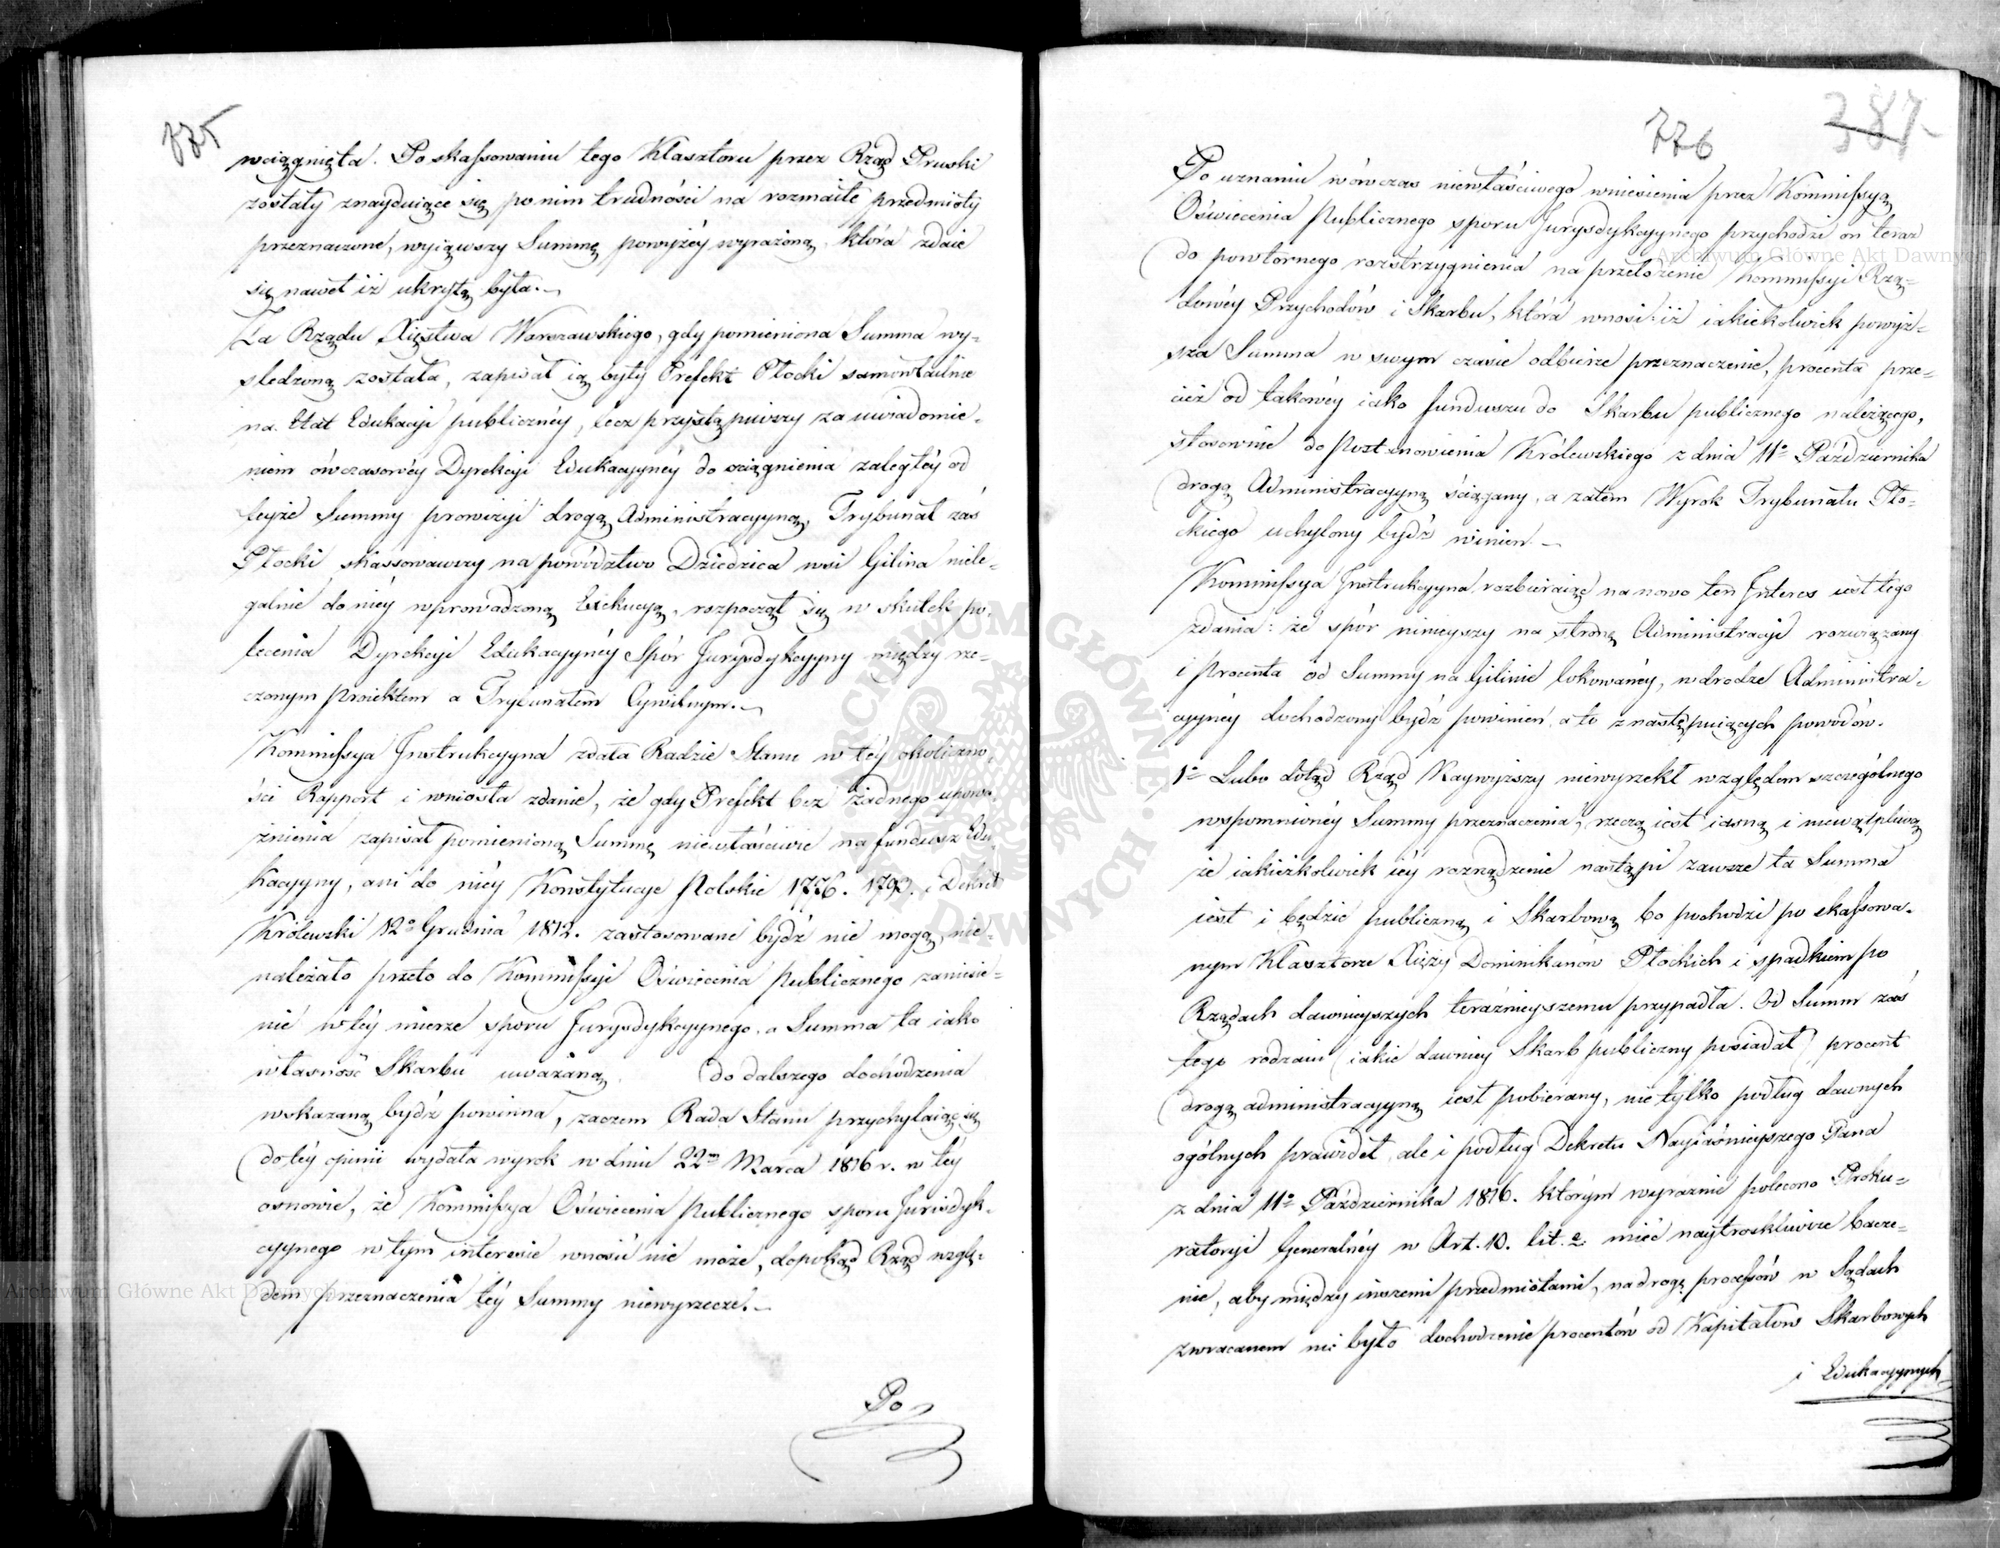 775
wciągnięta. Po skassowaniu tego Klasztoru przez Rząd Pruski
zostały znayduiące się po nim trudności na rozmaite przedmioty
przeznaczone, wyiąwszy Summę powyżéy wyrażoną, która zdaie
się nawet iż ukrytą była.
Za Rządu Xięstwa Warszawskiego, gdy pomieniona Summa wy-
śledzoną została, zapisał ią były Prefekt Płocki samowładnie
na Etat Edukacyi publicznéy, lecz przystąpiwszy za uwiadomie-
niem ówczasowéy Dyrekcyi Edukacyynéy do sciągnienia zaległéy od
teyże Summy prowizyi drogą Administracyyną, Trybunał zaś
Płocki skassowawszy na powództwo Dziedzica wsi Gilina niele-
galnie do niéy wprowadzoną Exekucyą, rozpoczął się w skutek po-
lecenia Dyrekcyi Edukacyynéy Spór Jurysdykcyyny między rze-
czonym Proiektem a Trybunałem Cywilnym.
Kommissya Instrukcyyna zdała Radzie Stanu w téy okoliczno-
ści Rapport i wniosła zdanie, że gdy Prefekt bez żadnego upowa-
żnienia zapisał pomienioną Summę niewłaściwie na fundusz Edu-
kacyyny, ani do niéy Konstytucye Polskie 1776. 1793. i Dekret
Królewski 12º Grudnia 1812. zastosowane bydź nie mogą, nie-
należało przeto do Kommissyi Oświecenia Publicznego zaniesie-
nie w téy mierze sporu Jurysdykcyynego, a Summa ta iako
własność Skarbu uważaną do dalszego dochodzenia
wskazaną bydź powinna, zaczem Rada Stanu przychylaiąc się
do téy opinii wydała wyrok w dniu 22m Marca 1816 r. w téy
osnowie, że Kommissya Oświecenia Publicznego sporu Jurisdyk-
cyynego w tym interesie wnosić nie może, dopokąd Rząd wzglę-
dem przeznaczenia téy Summy niewyrzecze.
Po
776
387
Po uznaniu wówczas niewłaściwego wniesienia przez Kommissyą
Oświecenia Publicznego sporu Jurysdykcyynego przychodzi on teraz
do powtórnego rozstrzygnienia na przełożenie Kommissyi Rzą-
dowéy Przychodów i Skarbu, która wnosi: iż iakiekolwiek powyż-
sza Summa w swym czasie odbierze przeznaczenie, procenta prze-
cież od takowéy iako funduszu do Skarbu publicznego należącego,
stosownie do Postanowienia Królewskiego z dnia 11º Października
drogą Administracyyną ściągany, a zatem Wyrok Trybunału Pło-
ckiego uchylony bydź winien.
Kommissya Instrukcyyna rozbieraiąc na nowo ten Interes iest tego
zdania: że spór ninieyszy na stronę Administracyi rozwiązany
i Procenta od Summy na Gilinie lokowanéy, w drodze Administra-
cyynéy dochodzony bydź powinien, a to z następuiących powodów.
1º Lubo dotąd Rząd Naywyższy niewyrzekł względem szczególnego
wspomnionéy Summy przeznaczenia, rzeczą iest iasną i niewątpliwą
że iakieżkolwiek iéy rozrządzenie nastąpi zawsze ta Summa
iest i będzie publiczną i Skarbową bo pochodzi po skassowa-
nym Klasztorze Xięży Dominikanów Płockich i spadkiem po
Rządach dawnieyszych teraźnieyszemu przypadła. Od Summ zaś
tego rodzaiu (iakie dawniey Skarb publiczny posiadał) procent
drogą administracyyną iest pobierany, nie tylko podług dawnych
ogólnych prawideł, ale i podług Dekretu Nayiaśnieyszego Pana
z dnia 11º Października 1816. którym wyraźnie polecono Proku-
ratoryi Generalnéy w Art. 10. lit. e mieć naytroskliwsze bacze-
nie, aby między inszemi przedmiotami, na drogę processów w Sądach
zwracanem nie było dochodzenie procentów od Kapitałów Skarbowych
i Edukacyynych
Archiwum Główne Akt Dawnych
Archiwum Główne Akt Dawnych
ARCHIWUM GŁÓWNE AKT DAWNYCH